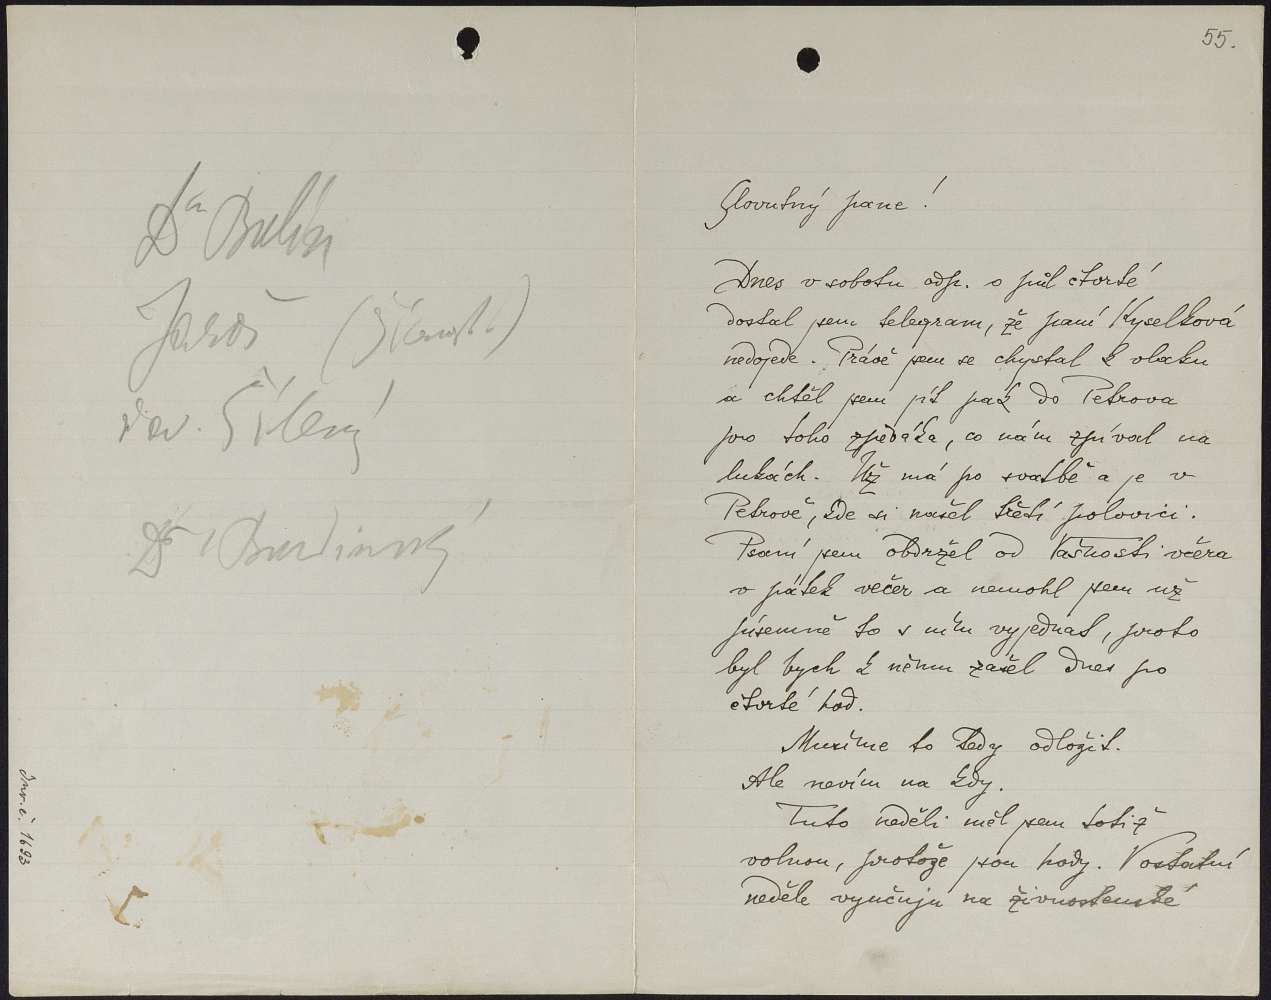 Dr Bulín
Jaroš
Šílený
Dr Burdinský
Inv. č. 1693
55.
Slovutný pane!
Dnes v sobotu odp. o půl čtvrté
dostal jsem telegram, že paní Kyselková
nedojede. Právě jsem se chystal k vlaku
a chtěl jsem jít pak do Petrova
pro toho zpěváka, co nám zpíval na
lukách. Už má po svatbě a je v
Petrově, kde si našel třetí polovici.
Psaní jsem obdržel od Vašnosti včera
v pátek večer a nemohl jsem už
písemně to s ním vyjednat, proto
byl bych k němu zašel dnes po
čtvrté hod.
Musíme to tedy odložit.
Ale nevím na kdy.
Tuto neděli měl jsem totiž
volnou, protože jsou hody. V ostatní
neděle vyučuju na živnostenské